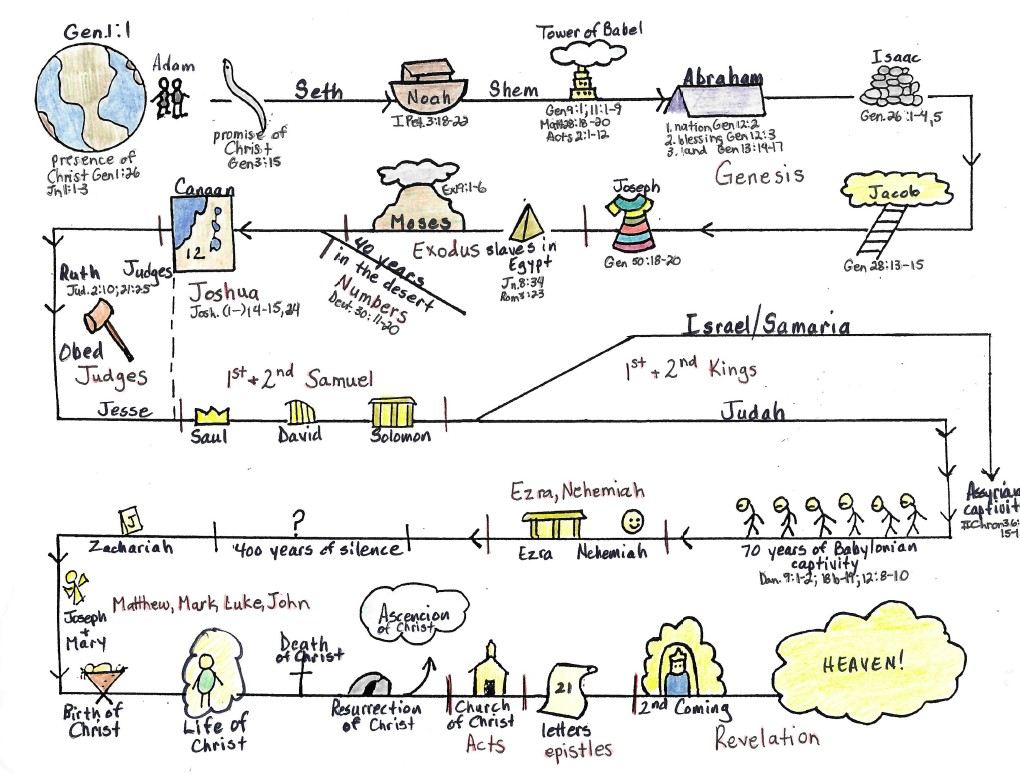 Gen.1:1
Adam
presence of
Christ Gen1:26
Jn 1:1-3
promise of
Christ
Gen3:15
Seth
Noah
I Pet. 3:18-22
Shem
Tower of Babel
Gen9:1; 11:1-9
Matt28:18-20
Acts 2:1-12
Abraham
1. nation Gen 12:2
2. blessing Gen 12:3
3. land Gen 13:14-17
Isaac
Gen. 26:1-4,5
Genesis
Jacob
Gen 28:13-15
Joseph
Gen 50:18-20
slaves in
Egypt
Jn.8:34
Exodus
Moses
Ex19:1-6
40 years
in the desert
Numbers
Deut. 30:11-20
Canaan
12
Joshua
Josh. (1-)14-15,24
Judges
Ruth
Jud. 2:10; 21:25
Obed
Judges
Jesse
1st + 2nd Samuel
Saul
David
Solomon
Israel/Samaria
1st + 2nd Kings
Judah
Assyrian
captivit
II Chron36:
15-1
70 years of Babylonian
captivity
Dan. 9:1-2; 18b-19; 12:8-10
Ezra, Nehemiah
Ezra
Nehemiah
?
400 years of silence
J
Zachariah
Joseph
+
Mary
Matthew, Mark, Luke, John
Birth of
Christ
Life of
Christ
Death
of Christ
Resurrection
of Christ
Ascencion
of Christ
Church
of Christ
Acts
21
letters
epistles
2nd Coming
Revelation
HEAVEN!